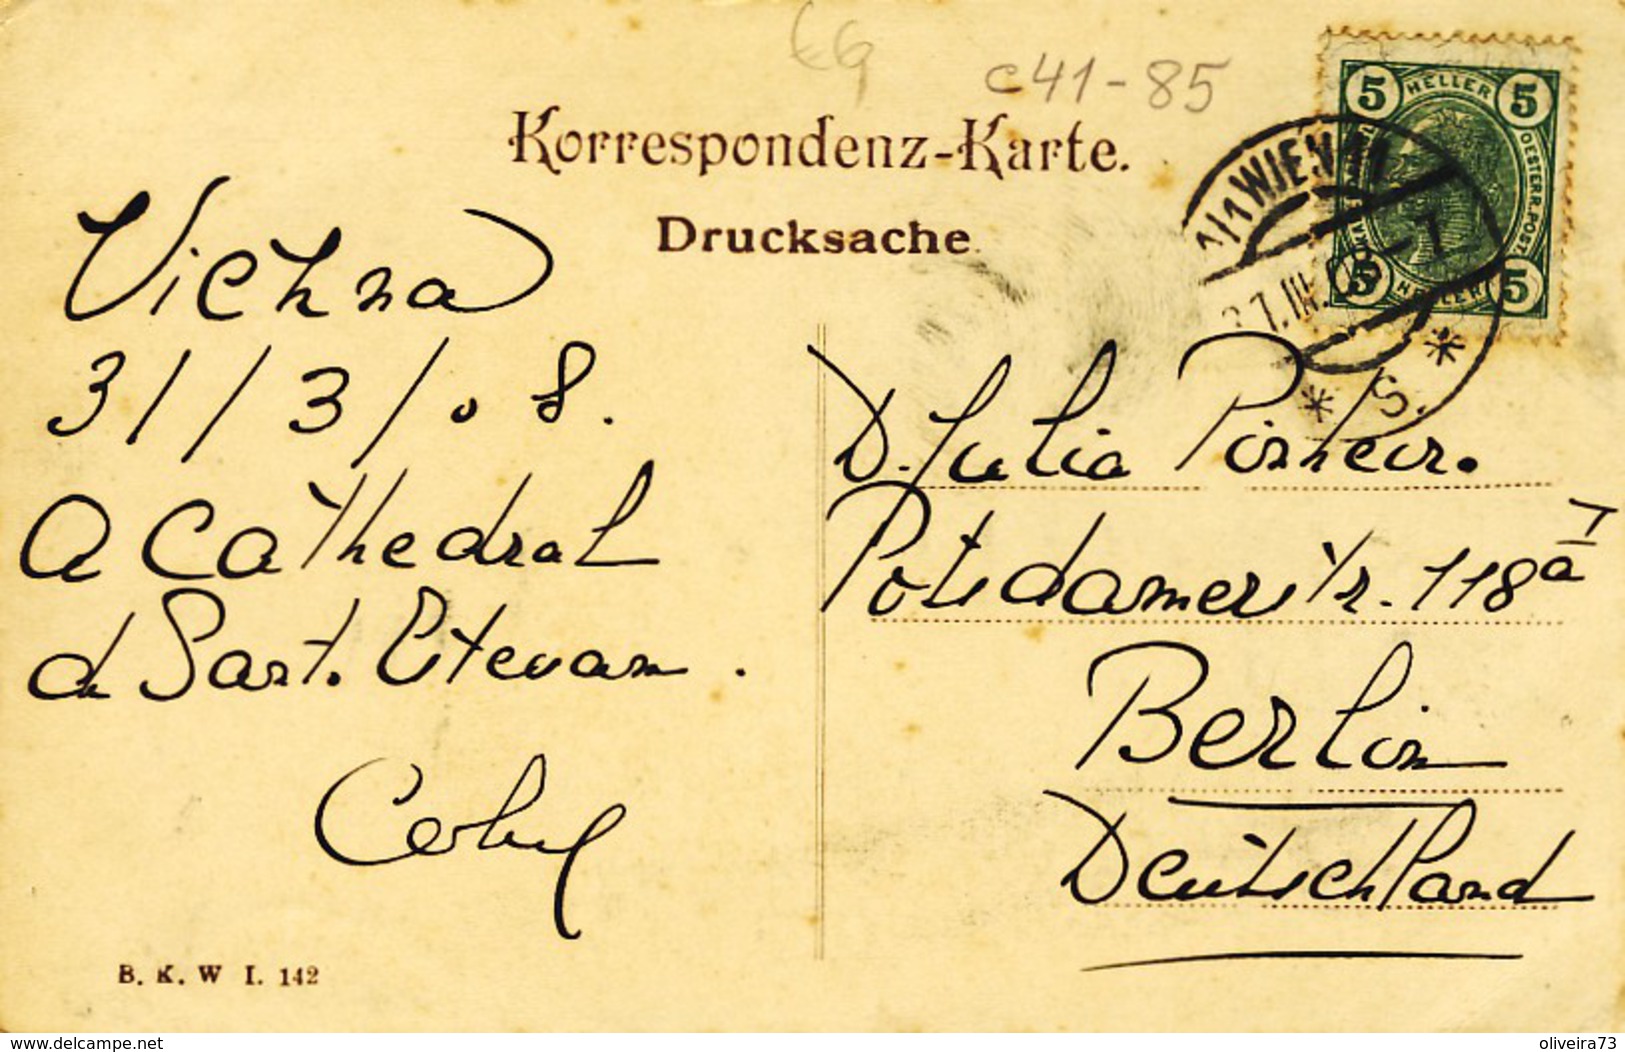 c41-85
Korrespondenz-Karte.
Drucksache
5 HELLER 5
OESTERR. POST
5 HELLER 5
1/1 WIEN 1
* S. *
Vienna
31/3/08.
A Cathedral
de Sant. Estevam.
D. Julia Pinheiro
Potsdamerstr. 118a I
Berlin
Deutschland
B. K. W I. 142
www.delcampe.net
oliveira73